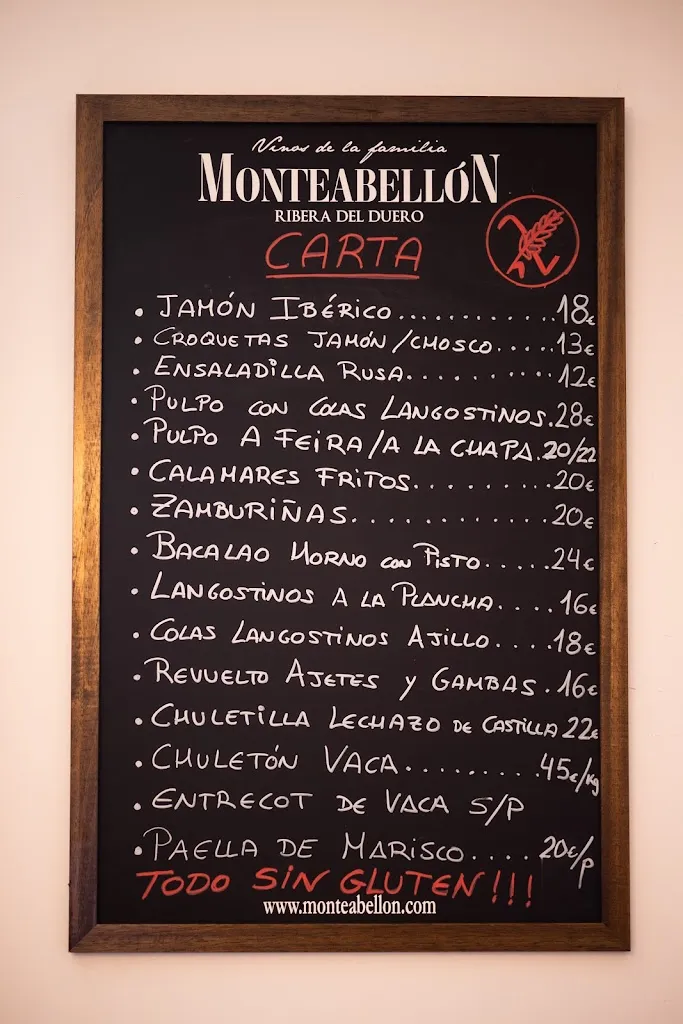 Vinos de la familia
MONTEABELLÓN
RIBERA DEL DUERO
CARTA
• JAMÓN IBÉRICO...........18€
• CROQUETAS JAMÓN/CHOSCO.....13€
• ENSALADILLA RUSA.........12€
• PULPO CON COLAS LANGOSTINOS.28€
• PULPO A FEIRA/A LA CHAPA.20/22
• CALAMARES FRITOS.........20€
• ZAMBURIÑAS............20€
• BACALAO HORNO CON PISTO.....24€
• LANGOSTINOS A LA PLANCHA....16€
• COLAS LANGOSTINOS AJILLO....18€
• REVUELTO AJETES Y GAMBAS.16€
• CHULETILLA LECHAZO DE CASTILLA 22€
• CHULETÓN VACA.........45€/kg
• ENTRECOT DE VACA S/P
• PAELLA DE MARISCO....20€/p
TODO SIN GLUTEN!!!
www.monteabellon.com